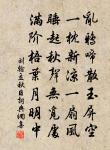 亂鴉啼散玉屏空
一枕新涼一扇風
睡起秋聲無覓處
滿階梧葉月明中
劉翰立秋日詩詞網書